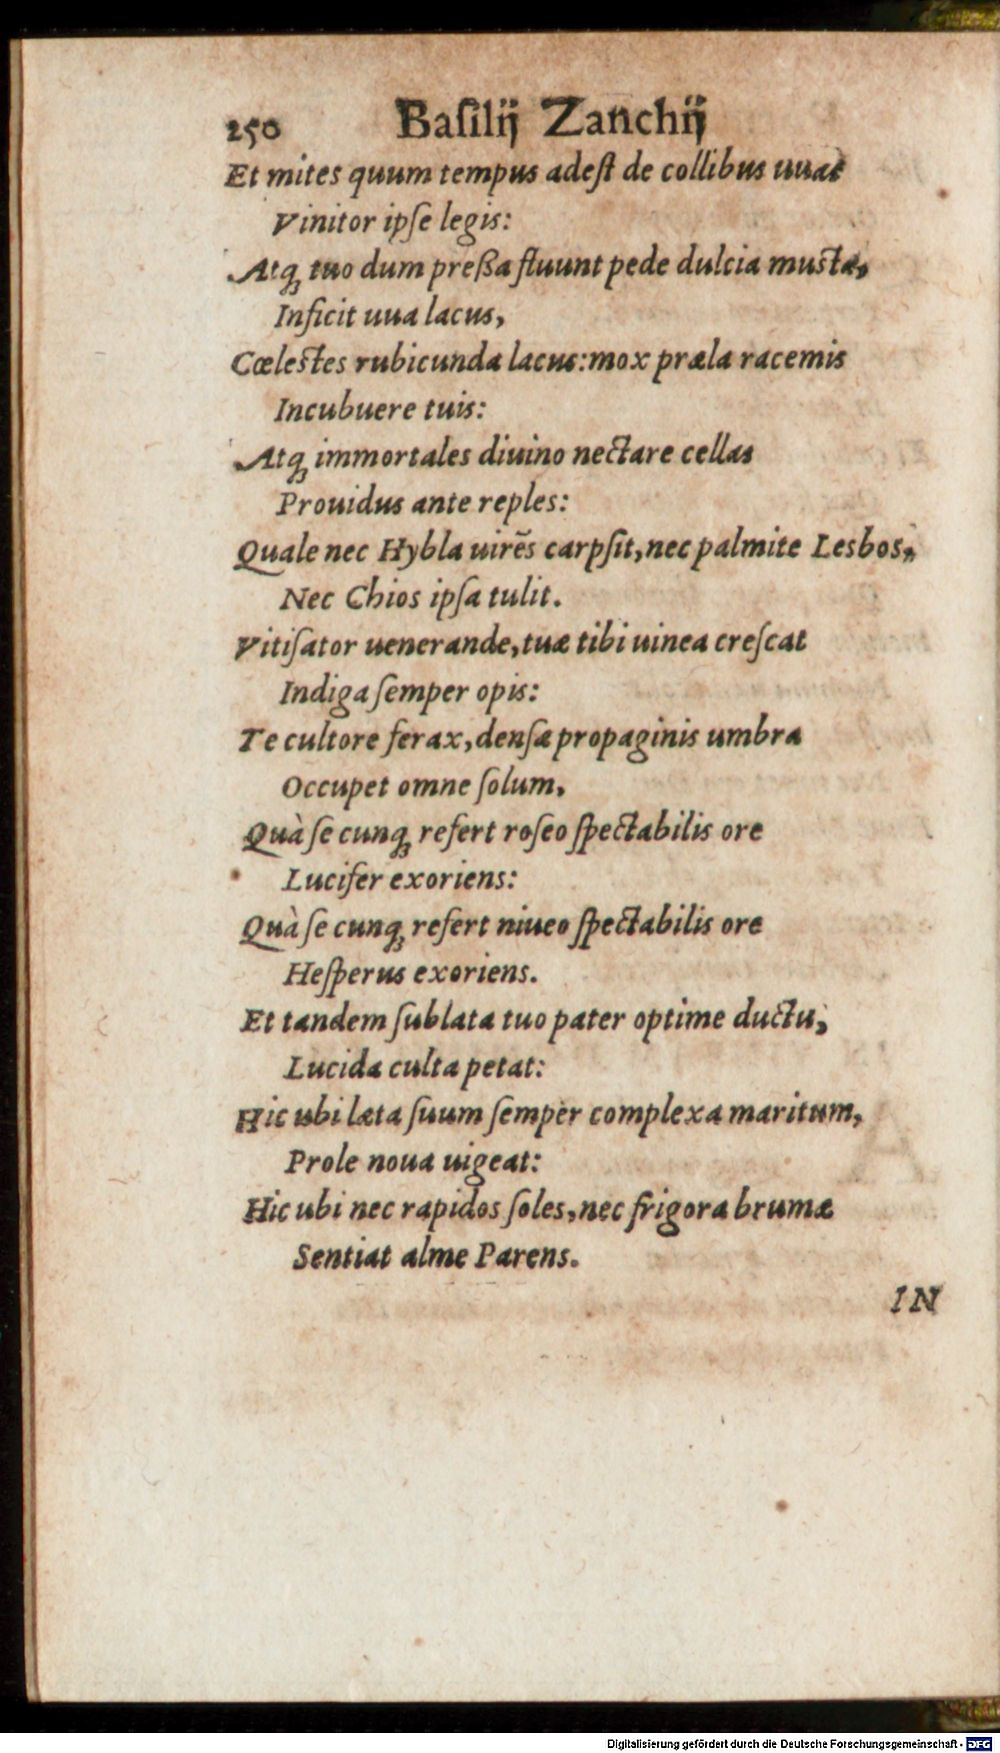 250 Baſilij Zanchij
Et mites quum tempus adeſt de collibus uuas
Vinitor ipſe legis:
Atq; tuo dum preßa fluunt pede dulcia muſta,
Inficit uua lacus,
Cœleſtes rubicunda lacus: mox præla racemis
Incubuere tuis:
Atq; immortales diuino nectare cellas
Prouidus ante reples:
Quale nec Hybla uirẽs carpſit, nec palmite Lesbos,
Nec Chios ipſa tulit.
Vitiſator uenerande, tuæ tibi uinea creſcat
Indiga ſemper opis:
Te cultore ferax, denſæ propaginis umbra
Occupet omne ſolum,
Quà ſe cunq; refert roſeo ſpectabilis ore
Lucifer exoriens:
Quà ſe cunq; refert niueo ſpectabilis ore
Heſperus exoriens.
Et tandem ſublata tuo pater optime ductu,
Lucida culta petat:
Hic ubi læta ſuum ſemper complexa maritum,
Prole noua uigeat:
Hic ubi nec rapidos ſoles, nec frigora brumæ
Sentiat alme Parens.
IN
Digitalisierung gefördert durch die Deutsche Forschungsgemeinschaft - DFG